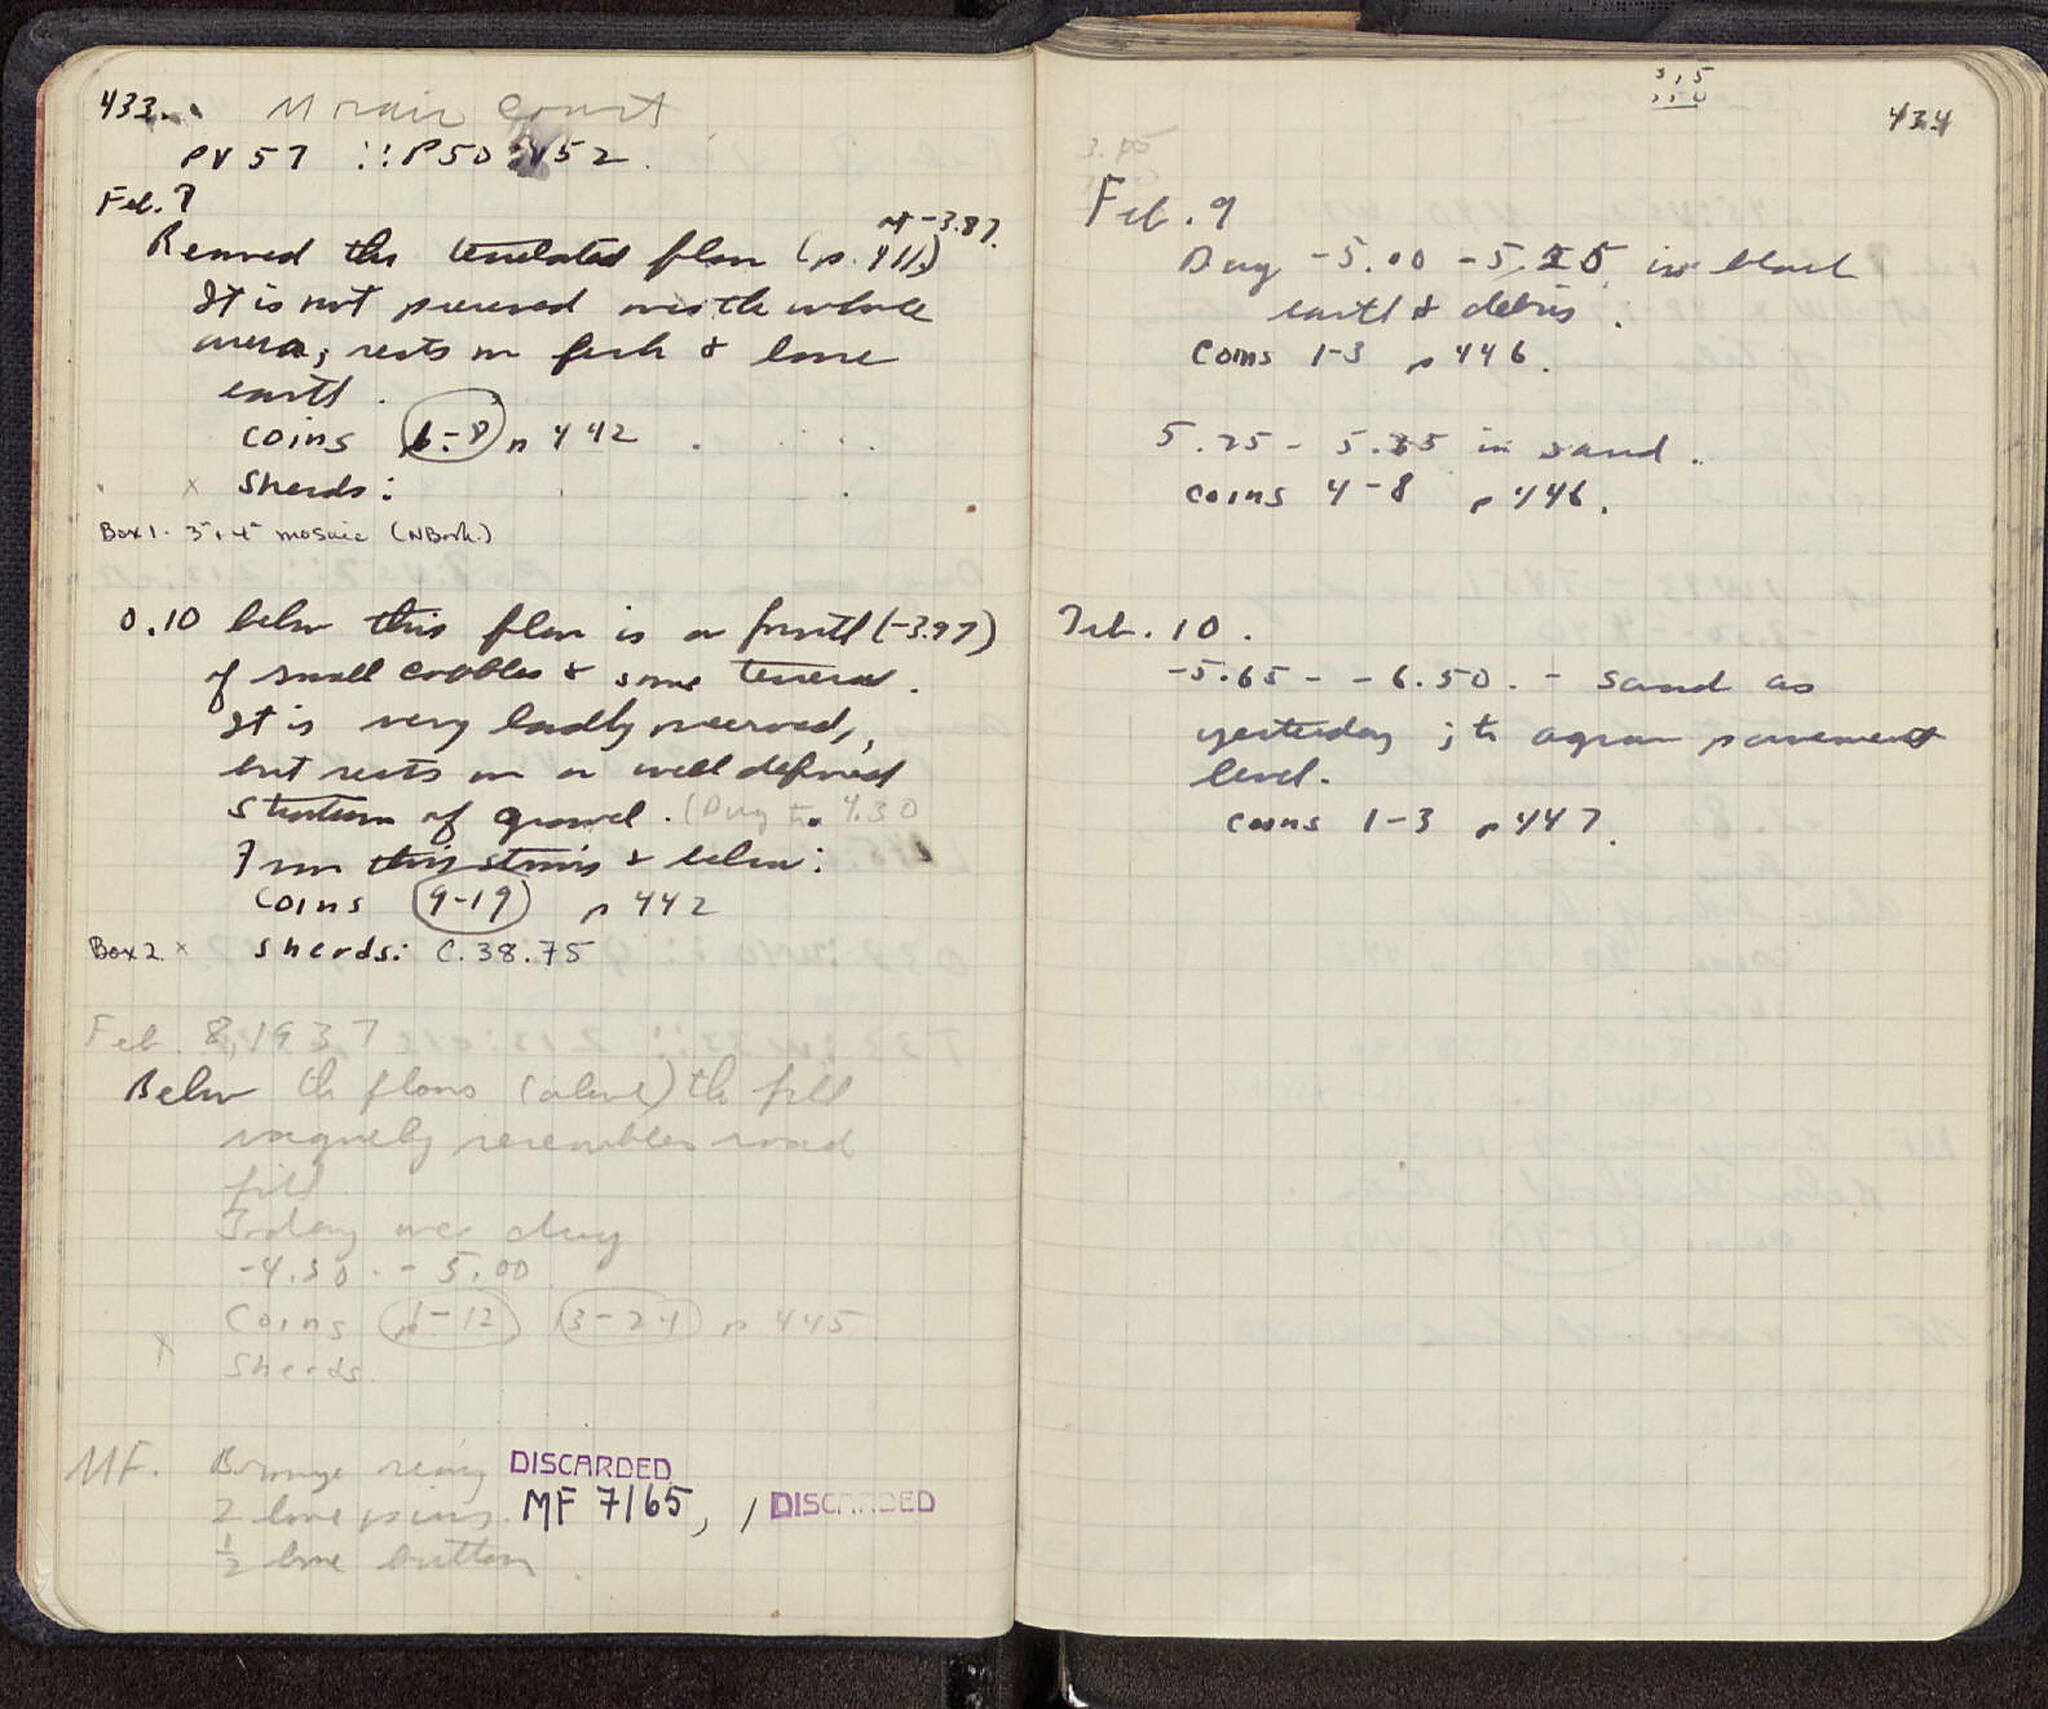 433.
Mosaic Court
PV 57 :: P50:V52.
Feb. 7
at -3.87.
Removed the tessellated floor (p. 411.)
It is not preserved over the whole
area; rests on fresh & loose
earth.
Coins 6-8 p 442
x Sherds:
Box 1. 3rd, 4th mosaic (NBook.)
0.10 below this floor is a fourth (-3.97)
of small cobbles & some tesserae.
It is very badly preserved,
but rests on a well defined
stratum of gravel. (Dug to 4.30
From this strosis & below:
Coins 9-19 p 442
Box 2 x sherds: C.38.75
Feb. 8, 1937
Below the floors (above) the fill
vaguely resembles road
fill
Today we dug
-4.30 - -5.00
Coins 1-12 13-24 p 445
x Sherds.
MF. Bronze ring DISCARDED
2 bone pins. MF 7165, 1 DISCARDED
½ bone button.
434
Feb. 9
Dug -5.00 -5.25 in black
earth & debris.
Coins 1-3 p 446.
5.25 - 5.65 in sand.
coins 4-8 p 446.
Feb. 10.
-5.65 - -6.50. - sand as
yesterday; to agora pavement
level.
coins 1-3 p 447.